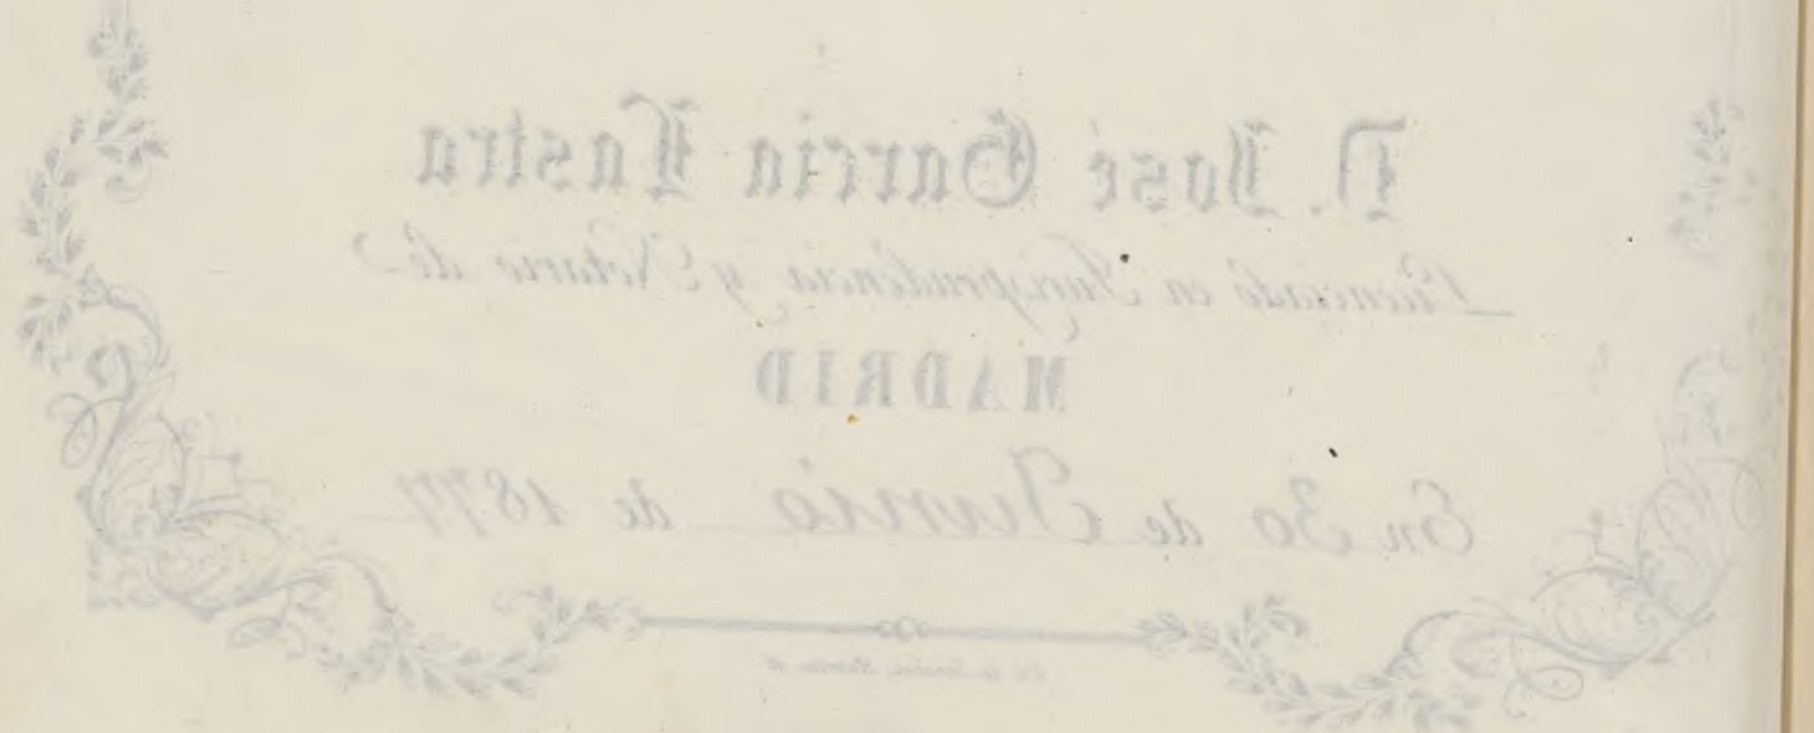 D. José Garcia Lastra
Licenciado en Jurisprudencia y Notario de
MADRID
En 30 de Junio de 1877